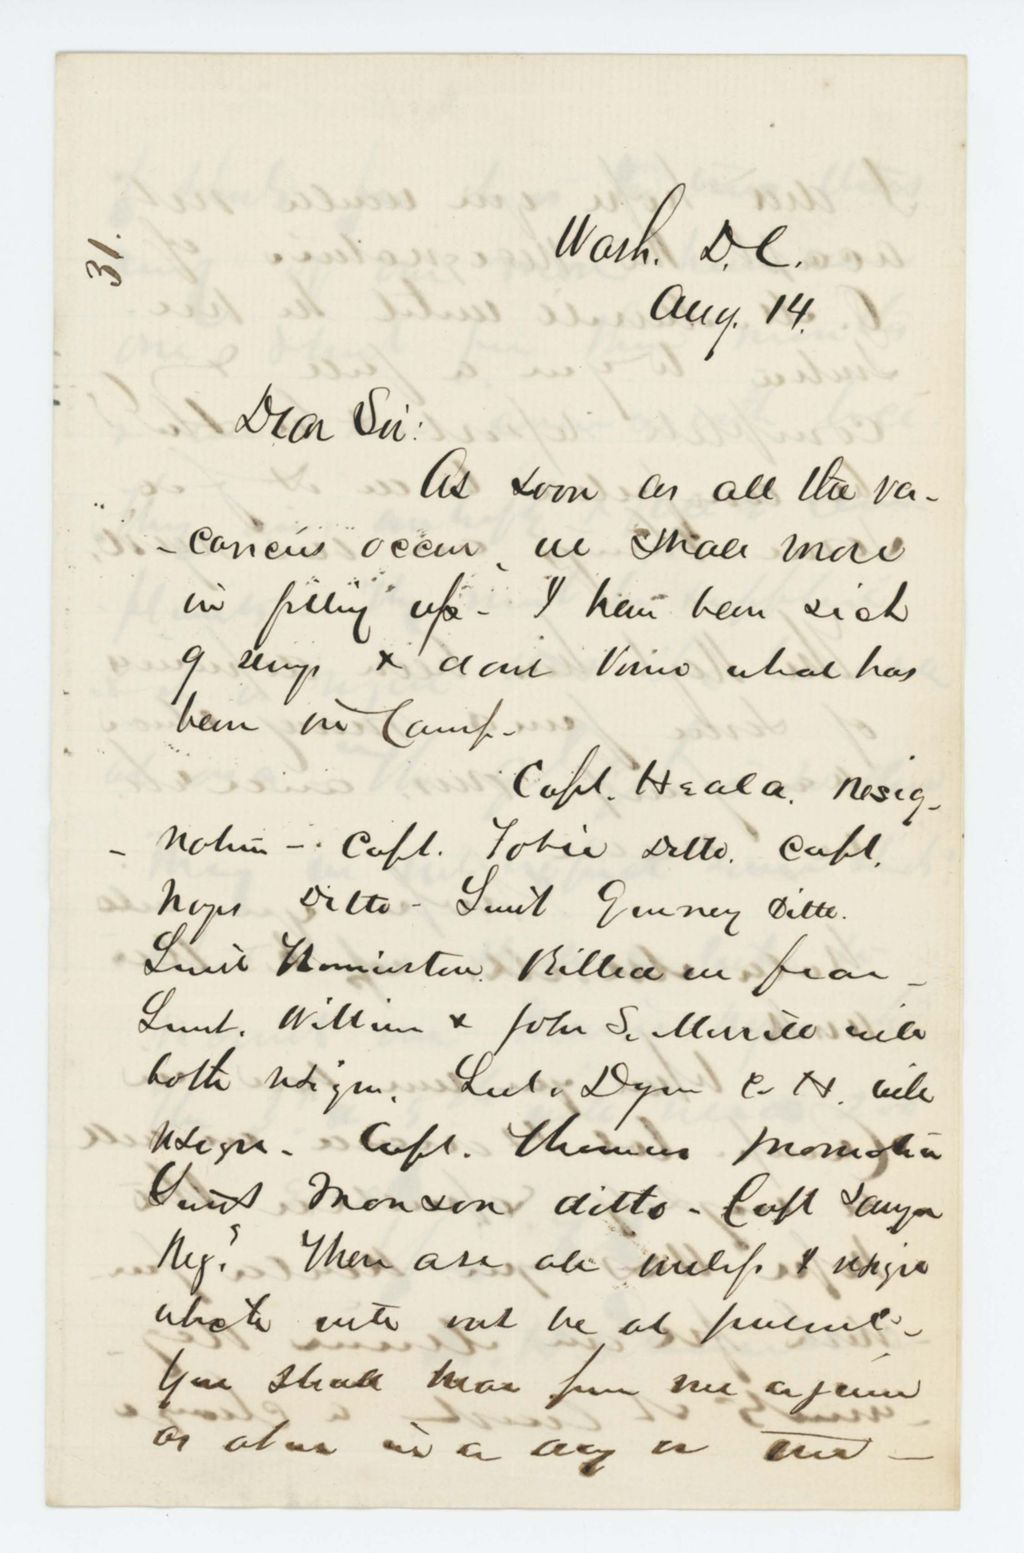 31.
Wash. D.C.
Aug. 14.
Dear Sir:
As soon as all the va-
-cancies occur, we shall move
in filling up - I have been sick
& dont know what has
been in Camp -
Capt. Heald. Resig-
- nation -. Capt. Tobie Ditto. Capt.
Ditto - Lieut Gurney Ditto.
Lieut Killed in
Lieut. William & John S. Merrill will
both resign. Lieut. Dyer C. H. will
resign. Capt. Thomas promotion
Lieut Monson ditto - Capt Sawyer
There are all I
will not be at present -
You shall hear from me again
as above in a day or two -